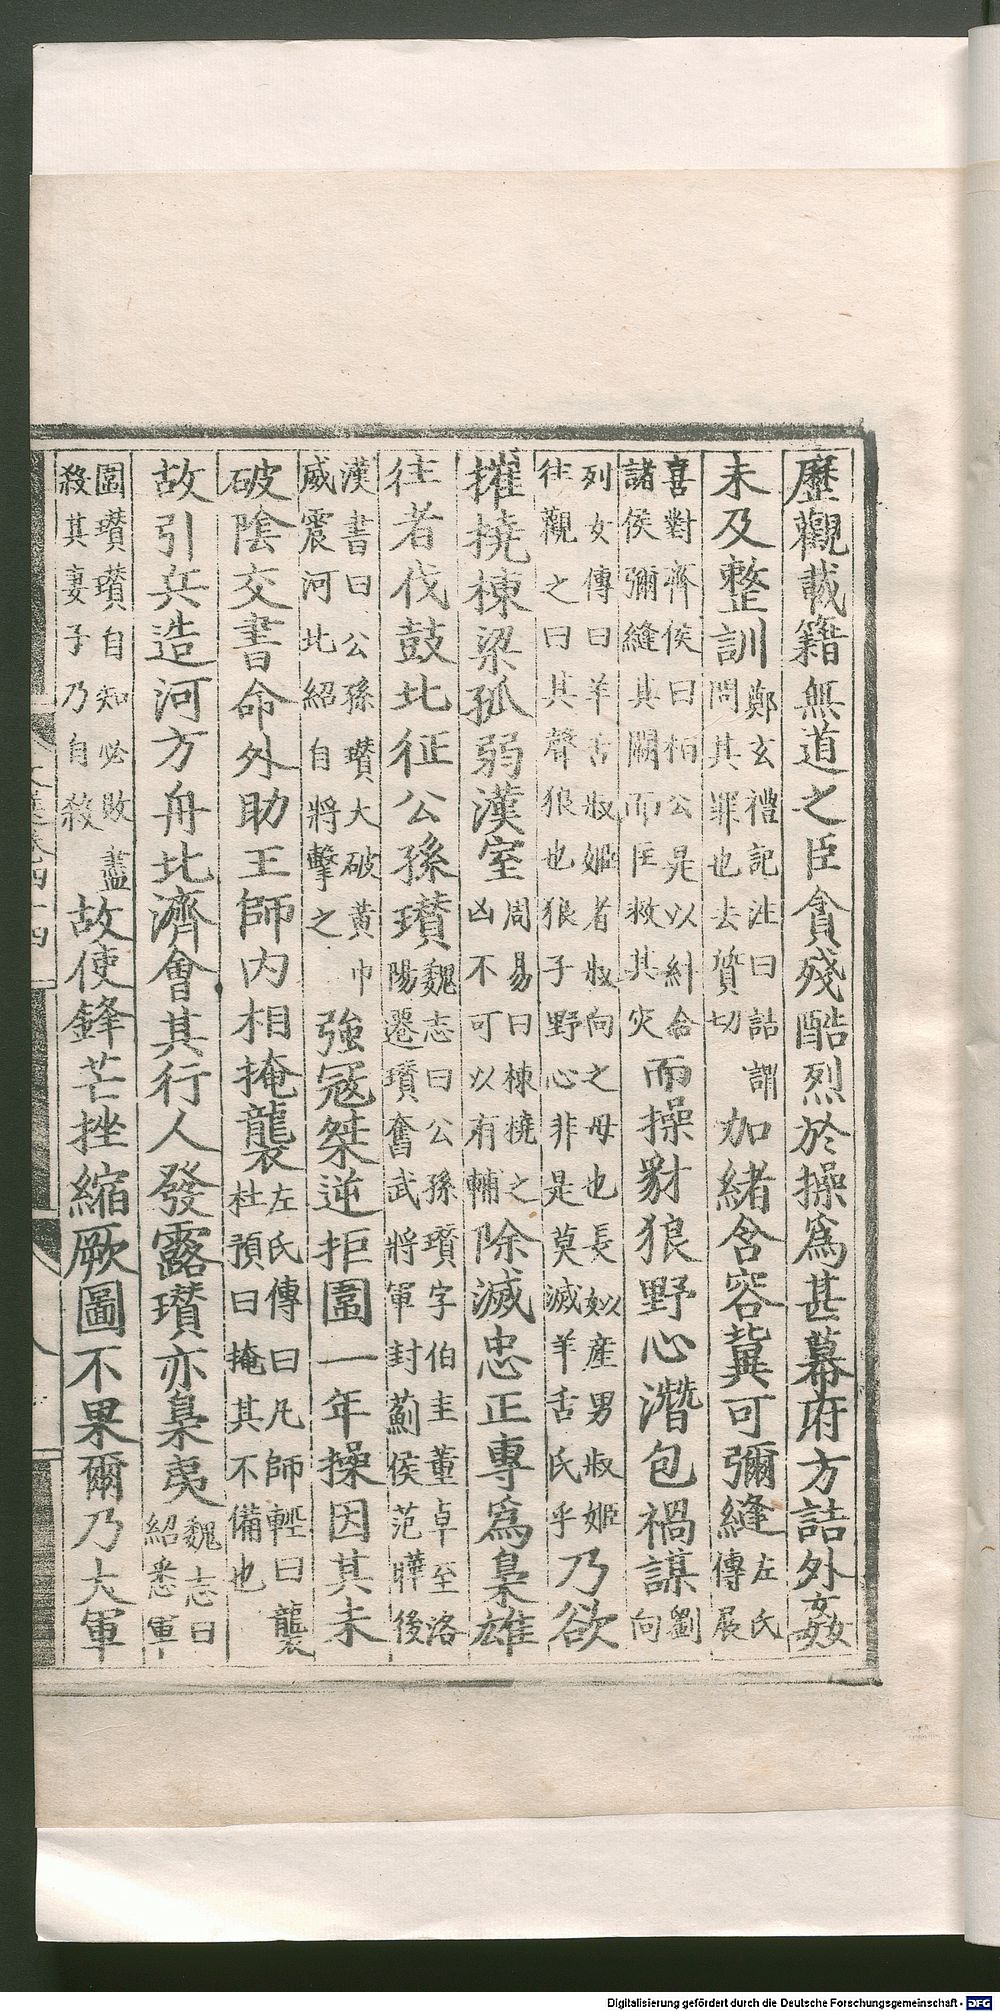 歷觀載籍無道之臣貪殘酷烈於操爲甚幕府方詰外姦
未及整訓鄭玄禮記注曰詰謂問其罪也去質切加緖含容冀可彌縫左氏傳展
喜對齊侯曰桓公是以糾合諸侯彌縫其闕而匡救其灾而操豺狼野心潛包禍謀劉向
列女傳曰羊舌叔姬者叔向之母也長姒產男叔姬往觀之曰其聲狼也狼子野心非是莫滅羊舌氏乎乃欲
摧撓棟梁孤弱漢室周易曰棟撓之凶不可以有輔除滅忠正專爲梟雄
往者伐鼓北征公孫瓚魏志曰公孫瓚字伯圭董卓至洛陽遷瓚奮武將軍封薊侯范曄後
漢書曰公孫瓚大破黃巾威震河北紹自將擊之強寇桀逆拒圍一年操因其未
破陰交書命外助王師內相掩襲左氏傳曰凡師輕曰襲杜預曰掩其不備也
故引兵造河方舟北濟會其行人發露瓚亦梟夷魏志曰紹悉軍
圍瓚瓚自知必敗盡殺其妻子乃自殺故使鋒芒挫縮厥圖不果爾乃大軍
Digitalisierung gefördert durch die Deutsche Forschungsgemeinschaft - DFG